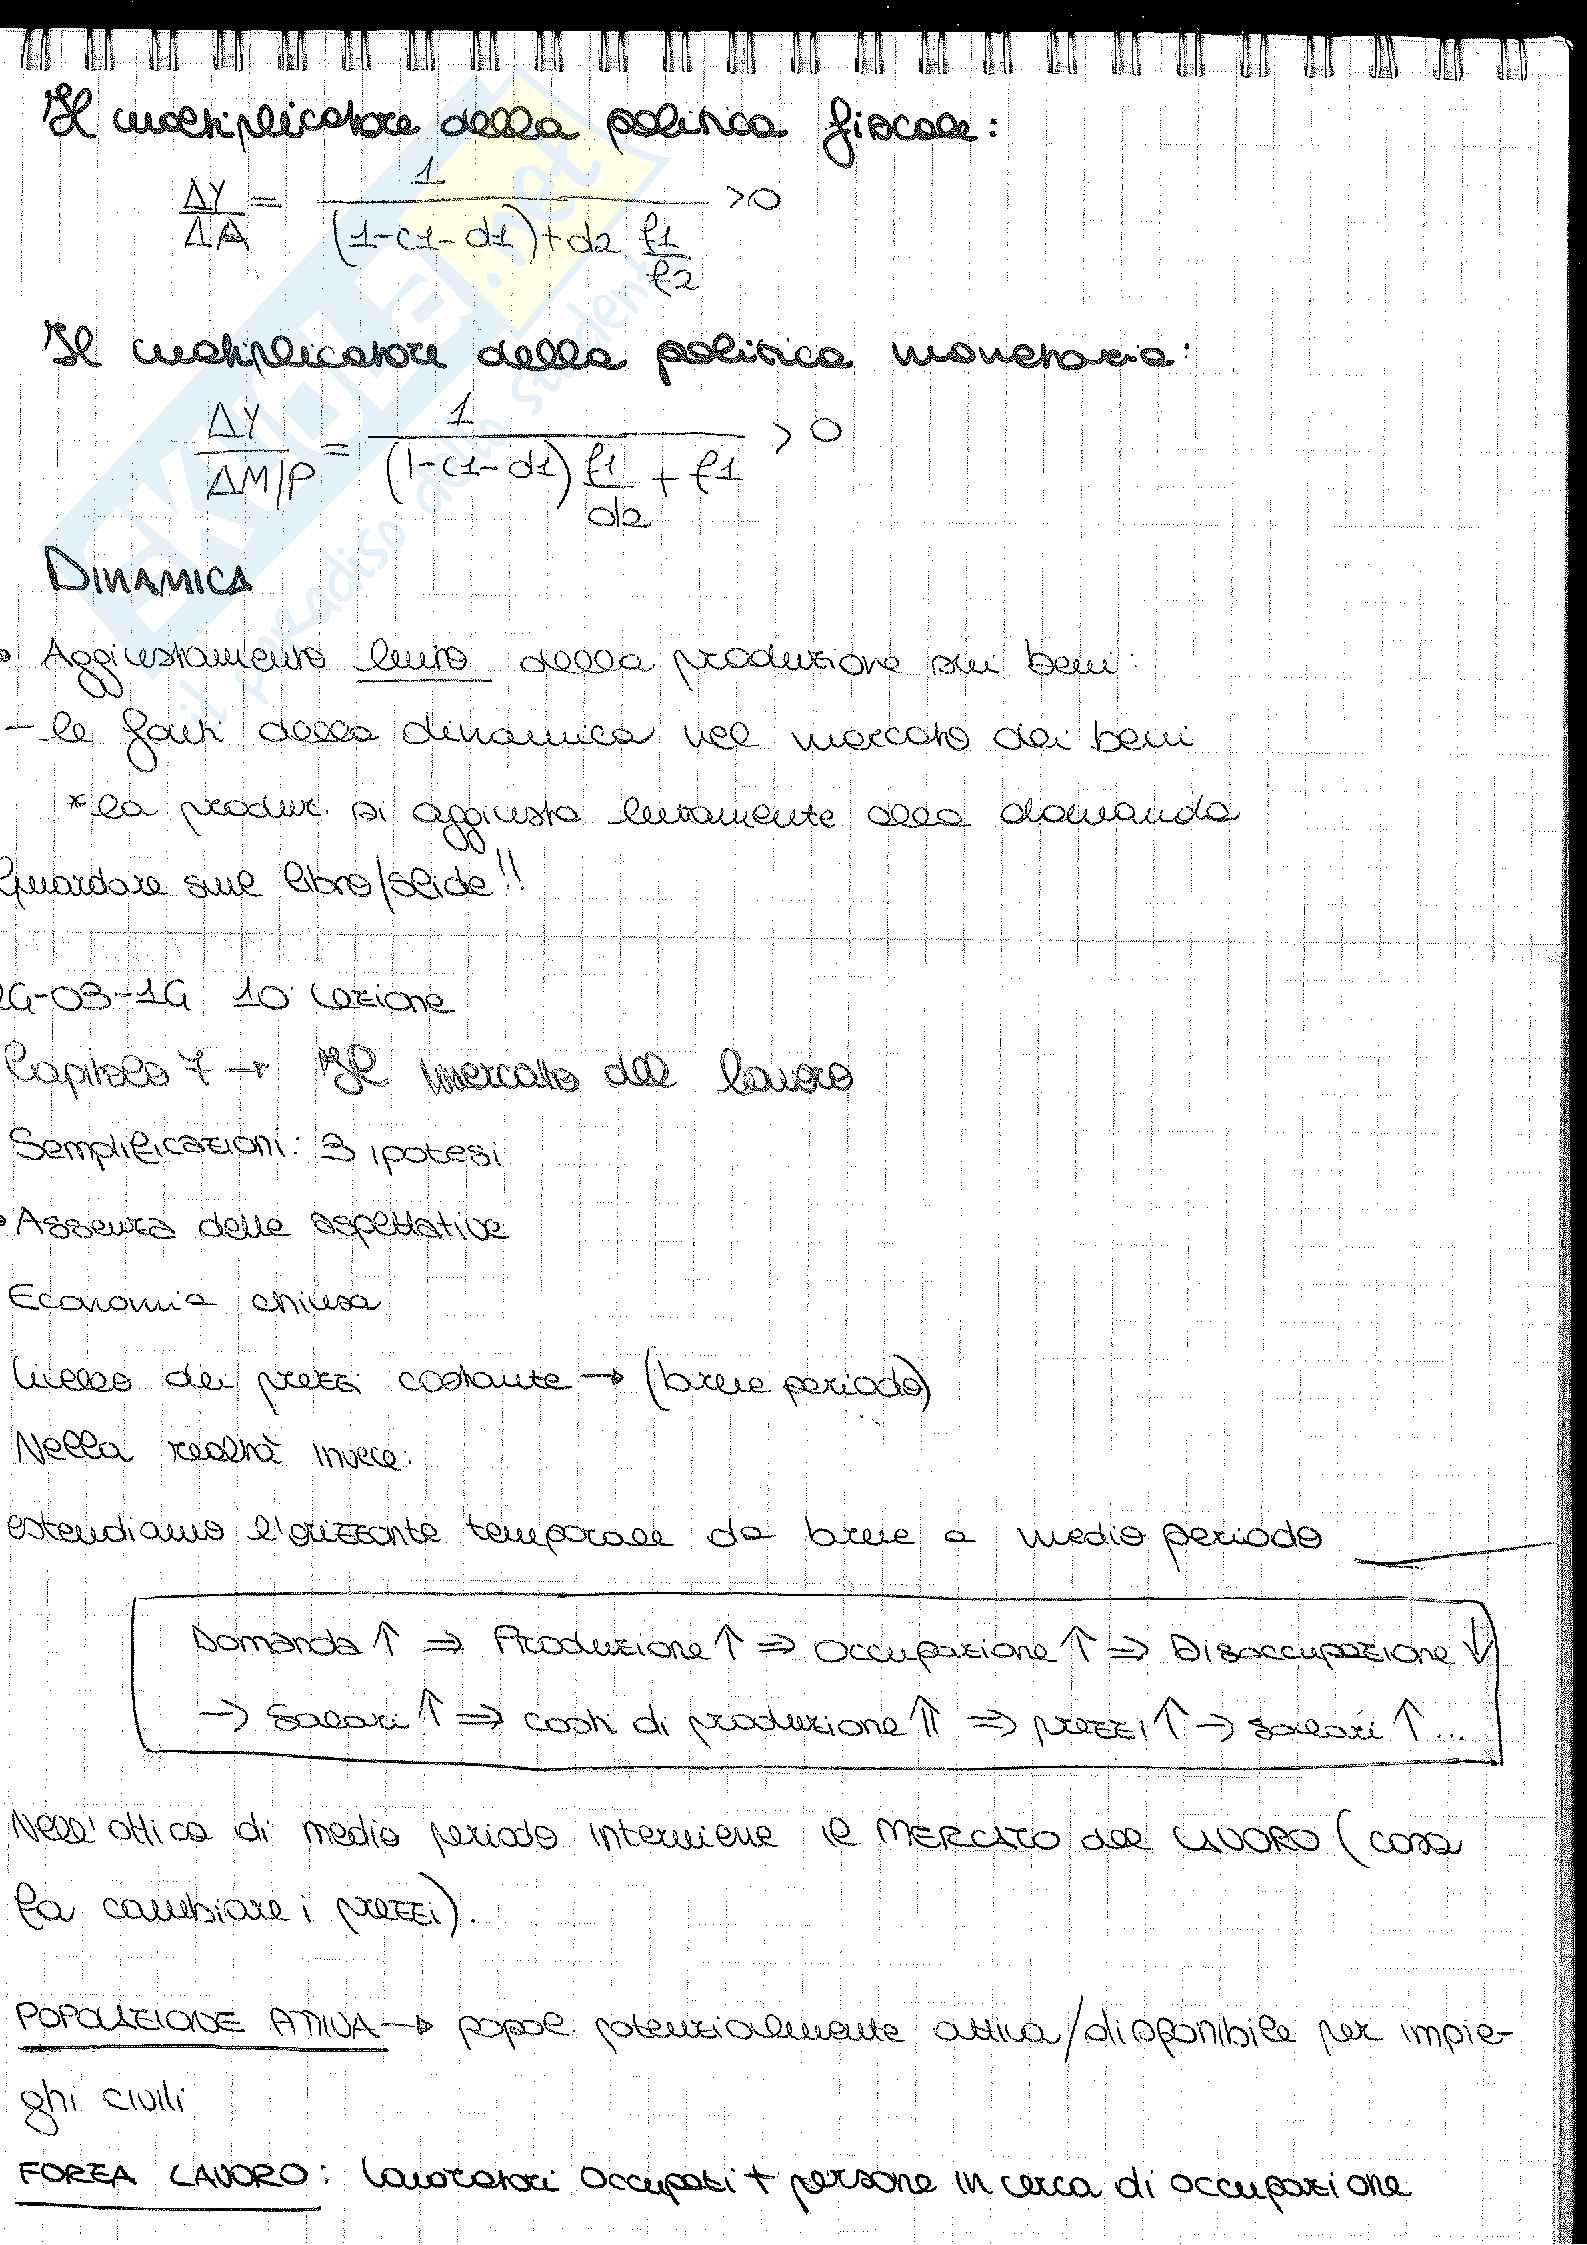 Il moltiplicatore della politica fiscale:
ΔY/ΔA = 1/((1-c1-d1)+d2 f1/f2) >0
Il moltiplicatore della politica monetaria:
ΔY/ΔM/P = 1/((1-c1-d1) f1/d2 + f1) > 0
DINAMICA
• Aggiustamento lento della produzione sui beni:
- le fonti della dinamica nel mercato dei beni
* la produz. si aggiusta lentamente alla domanda
Guardare sul libro/slide!!
10° Lezione
Capitolo 7 → Il mercato del lavoro
Semplificazioni: 3 ipotesi
• Assenza delle aspettative
Economia chiusa
Livello dei prezzi costante → (breve periodo)
Nella realtà invece:
estendiamo l'orizzonte temporale da breve a medio periodo
Domanda ↑ ⇒ Produzione ↑ ⇒ Occupazione ↑ ⇒ Disoccupazione ↓
→ salari ↑ ⇒ costi di produzione ⇑ ⇒ prezzi ↑ → salari ↑ ...
Nell'ottica di medio periodo interviene il MERCATO del LAVORO (cosa
fa cambiare i prezzi).
POPOLAZIONE ATTIVA → popol. potenzialmente attiva/disponibile per impie-
ghi civili
FORZA LAVORO: lavoratori occupati + persone in cerca di occupazione